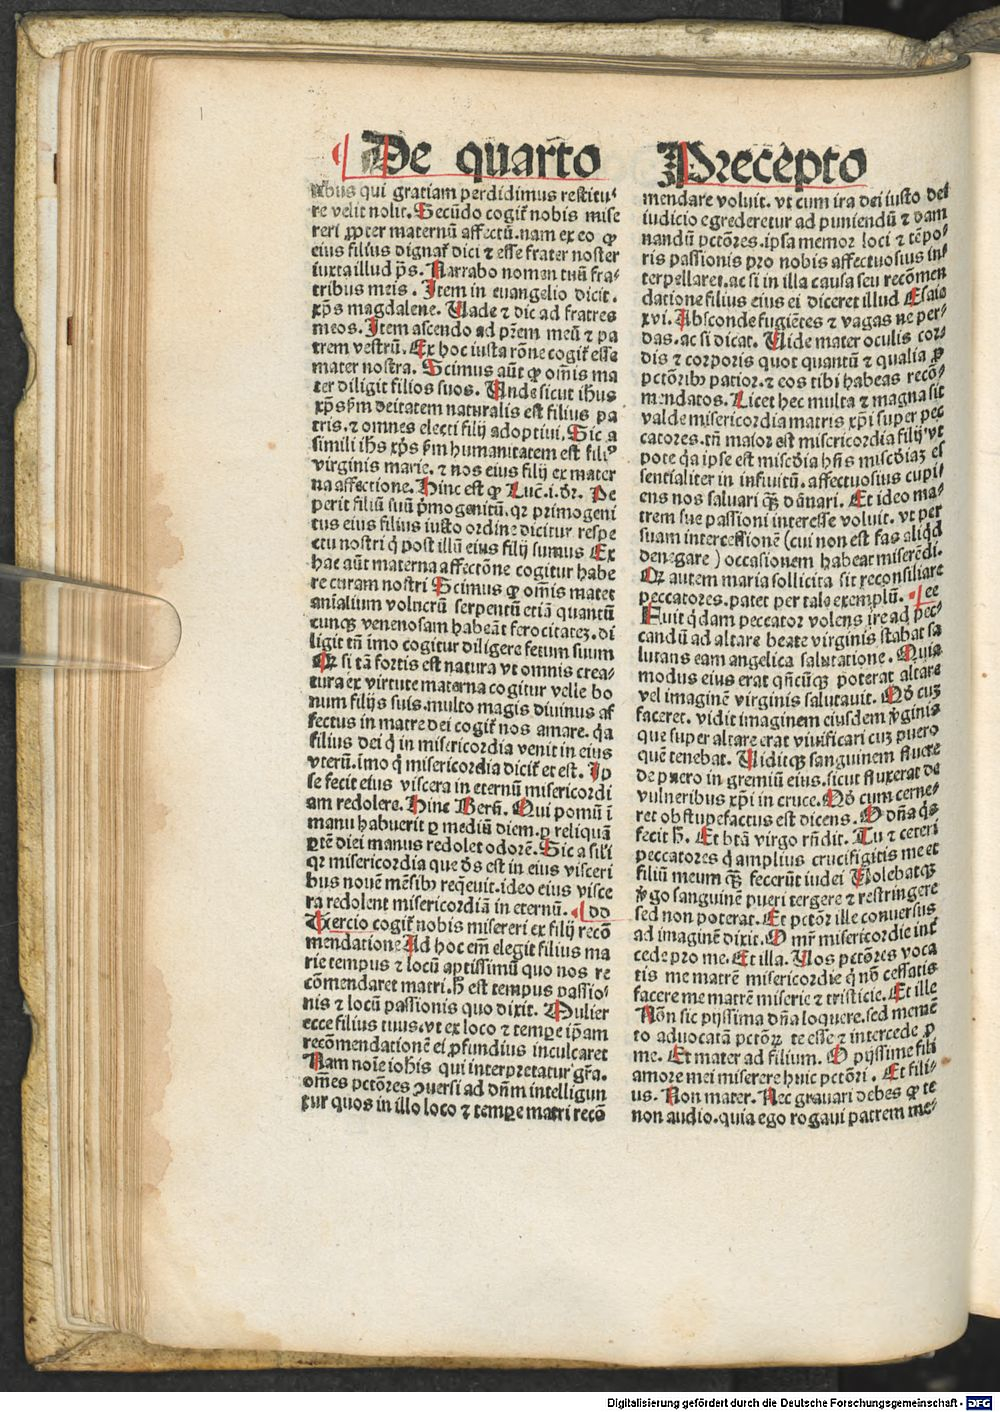 De quarto Precepto
ribus qui gratiam perdidimus restitu⸗
re velit nolit. Secūdo cogit᷑ nobis mise
reri ꝓpter maternū affectū. nam ex eo ꝙ
eius filius dignat᷑ dici ⁊ esse frater noster
iuxta illud ps̄. Narrabo nomen tuū fra⸗
tribus meis. Item in euangelio dicit.
xp̄s magdalene. Vade ⁊ dic ad fratres
meos. Item ascendo ad pr̄em meū ⁊ pa
trem vestrū. Ex hoc iusta rōne cogit᷑ esse
mater nostra. Scimus aūt ꝙ om̄is ma
ter diligit filios suos. Unde sicut ih̄us
xp̄s ẜm deitatem naturalis est filius pa
tris. ⁊ omnes electi filij adoptiui. Sic a
simili ih̄s xp̄s ẜm humanitatem est filiꝰ
virginis marie. ⁊ nos eius filij ex mater
na affectione. Hinc est ꝙ Luc̄. i. dr̄. Pe
perit filiū suū pͥmogenitū. qꝛ primogeni
tus eius filius iusto ordine dicitur respe
ctu nostri qͥ post illū eius filij sumus Ex
hac aūt materna affectōne cogitur habe
re curam nostri Scimus ꝙ om̄is mater
anīalium volucrū serpentū etiā quantū
cunqꝫ venenosam habeāt ferocitatez. di
ligit tn̄ īmo cogitur diligere fetum suum
Qꝛ si tā fortis est natura vt omnis crea⸗
tura ex virtute materna cogitur velle bo
num filijs suis. multo magis diuinus af
fectus in matre dei cogit᷑ nos amare. qͣa
filius dei qͥ in misericordia venit in eius
vterū. īmo qͥ misericordia dicit᷑ et est. Ip
se fecit eius viscera in eternū misericordi
am redolere. Hinc Bern̄. Qui pomū ī
manu habuerit ꝑ mediū diem. ꝑ reliquā
ꝑtē diei manus redolet odorē. Sic a sil̄i
qꝛ misericordia que ds̄ est in eius visceri
bus nouē mēsibꝫ reqͥeuit. ideo eius visce
ra redolent misericordiā in eternū. DD
Tercio cogit᷑ nobis misereri ex filij recō
mendatione Ad hoc em̄ elegit filius ma
rie tempus ⁊ locū aptissimū quo nos re
cōmendaret matri. ħ est tempus passio⸗
nis ⁊ locū passionis quo dixit. Mulier
ecce filius tuus. vt ex loco ⁊ tempe ip̄am
recōmendationē ei ꝓfundius inculcaret
Nam noīe ioh̄is qui interpretatur gr̄a.
om̄es pctōres ꝯuersi ad dn̄m intelligun
tur quos in illo loco ⁊ tempe matri recō
mendare voluit. vt cum ira dei iusto dei
iudicio egrederetur ad puniendū ⁊ dam
nandū pctōres. ipsa memor loci ⁊ tēpo⸗
ris passionis pro nobis affectuosius in⸗
terpellaret. ac si in illa causa seu recōmen
datione filius eius ei diceret illud Esaie
xvi. Absconde fugiētes ⁊ vagas ne per⸗
das. ac si dicat. Vide mater oculis cor⸗
dis ⁊ corporis quot quantū ⁊ qualia ꝓ
pctōribꝫ patior. ⁊ eos tibi habeas recō⸗
mendatos. Licet hec multa ⁊ magna sit
valde misericordia matris xp̄i super pec
catores. tn̄ maior est misericordia filij vt
pote qͣa ipse est misc̄dia hn̄s misc̄diaꝫ es
sentialiter in infinitū. affectuosius cupi⸗
ens nos saluari qͣꝫ dānari. Et ideo ma⸗
trem sue passioni interesse voluit. vt per
suam intercessionē (cui non est fas aliqͥd
denegare) occasionem habeat miserēdi.
Qꝛ autem maria sollicita sit reconsiliare
peccatores. patet per tale exemplū. EE
Fuit qͥdam peccator volens ire ad pec⸗
candū ad altare beate virginis stabat sa
lutans eam angelica salutatione. Quia
modus eius erat qn̄cūqꝫ poterat altare
vel imaginē virginis salutauit. Qd̄ cuꝫ
faceret. vidit imaginem eiusdem vͥginis
que super altare erat viuificari cuꝫ puero
quē tenebat. Viditqꝫ sanguinem fluere
de puero in gremiū eius. sicut fluxerat de
vulneribus xp̄i in cruce. Qd̄ cum cerne⸗
ret obstupefactus est dicens. O dn̄a qͥs
fecit ħ. Et btā virgo rn̄dit. Tu ⁊ ceteri
peccatores qͥ amplius crucifigitis me et
filiū meum qͣꝫ fecerūt iudei Volebatqꝫ
vͥgo sanguinē pueri tergere ⁊ restringere
sed non poterat. Et pctōr ille conuersus
ad imaginē dixit. O mr̄ misericordie int̄
cede pro me. Et illa. Vos pctōres voca
tis me matrē misericordie qͥ nō cessatis
facere me matrē miserie ⁊ tristicie. Et ille
Nōn sic pijssima dn̄a loquere. sed memē
to aduocatā pctōꝝ te esse ⁊ intercede ꝓ
me. Et mater ad filium. O pijssime fili
amore mei miserere huic pctōri. Et fili⸗
us. Non mater. Nec grauari debes ꝙ te
non audio. quia ego rogaui patrem me⸗
Digitalisierung gefördert durch die Deutsche Forschungsgemeinschaft - DFG